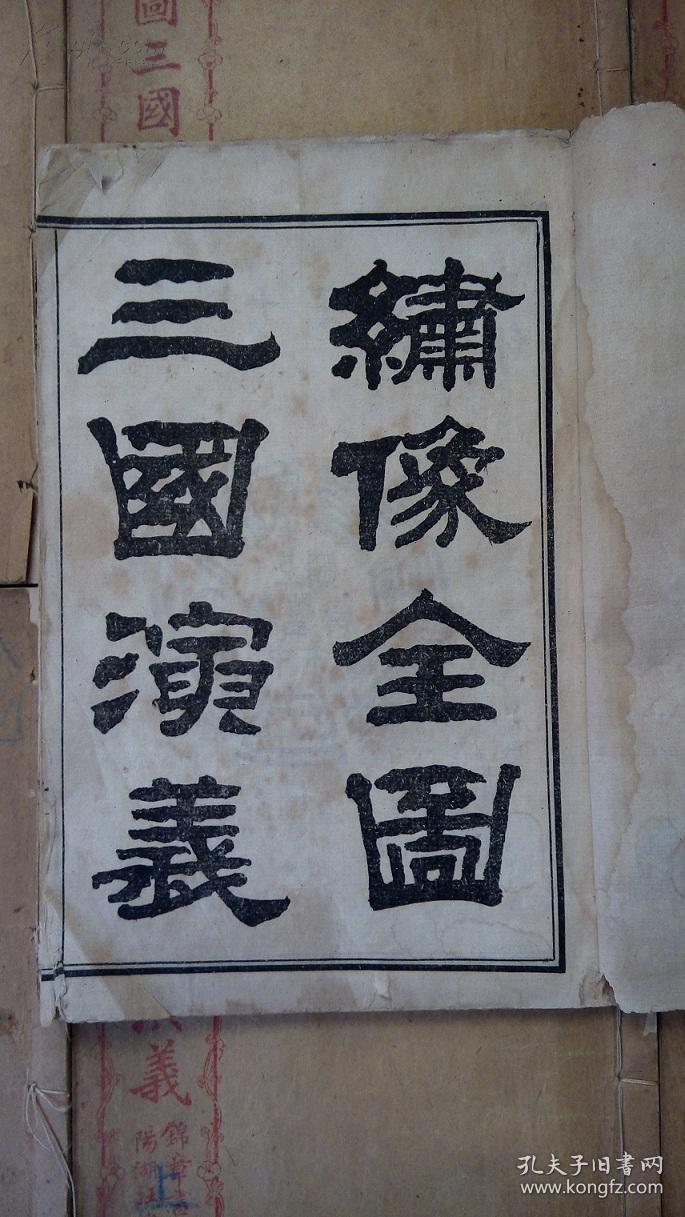 繡像全圖
三國演義
圖三國
義
錦章
陽湖
上
孔夫子旧书网
www.kongfz.com